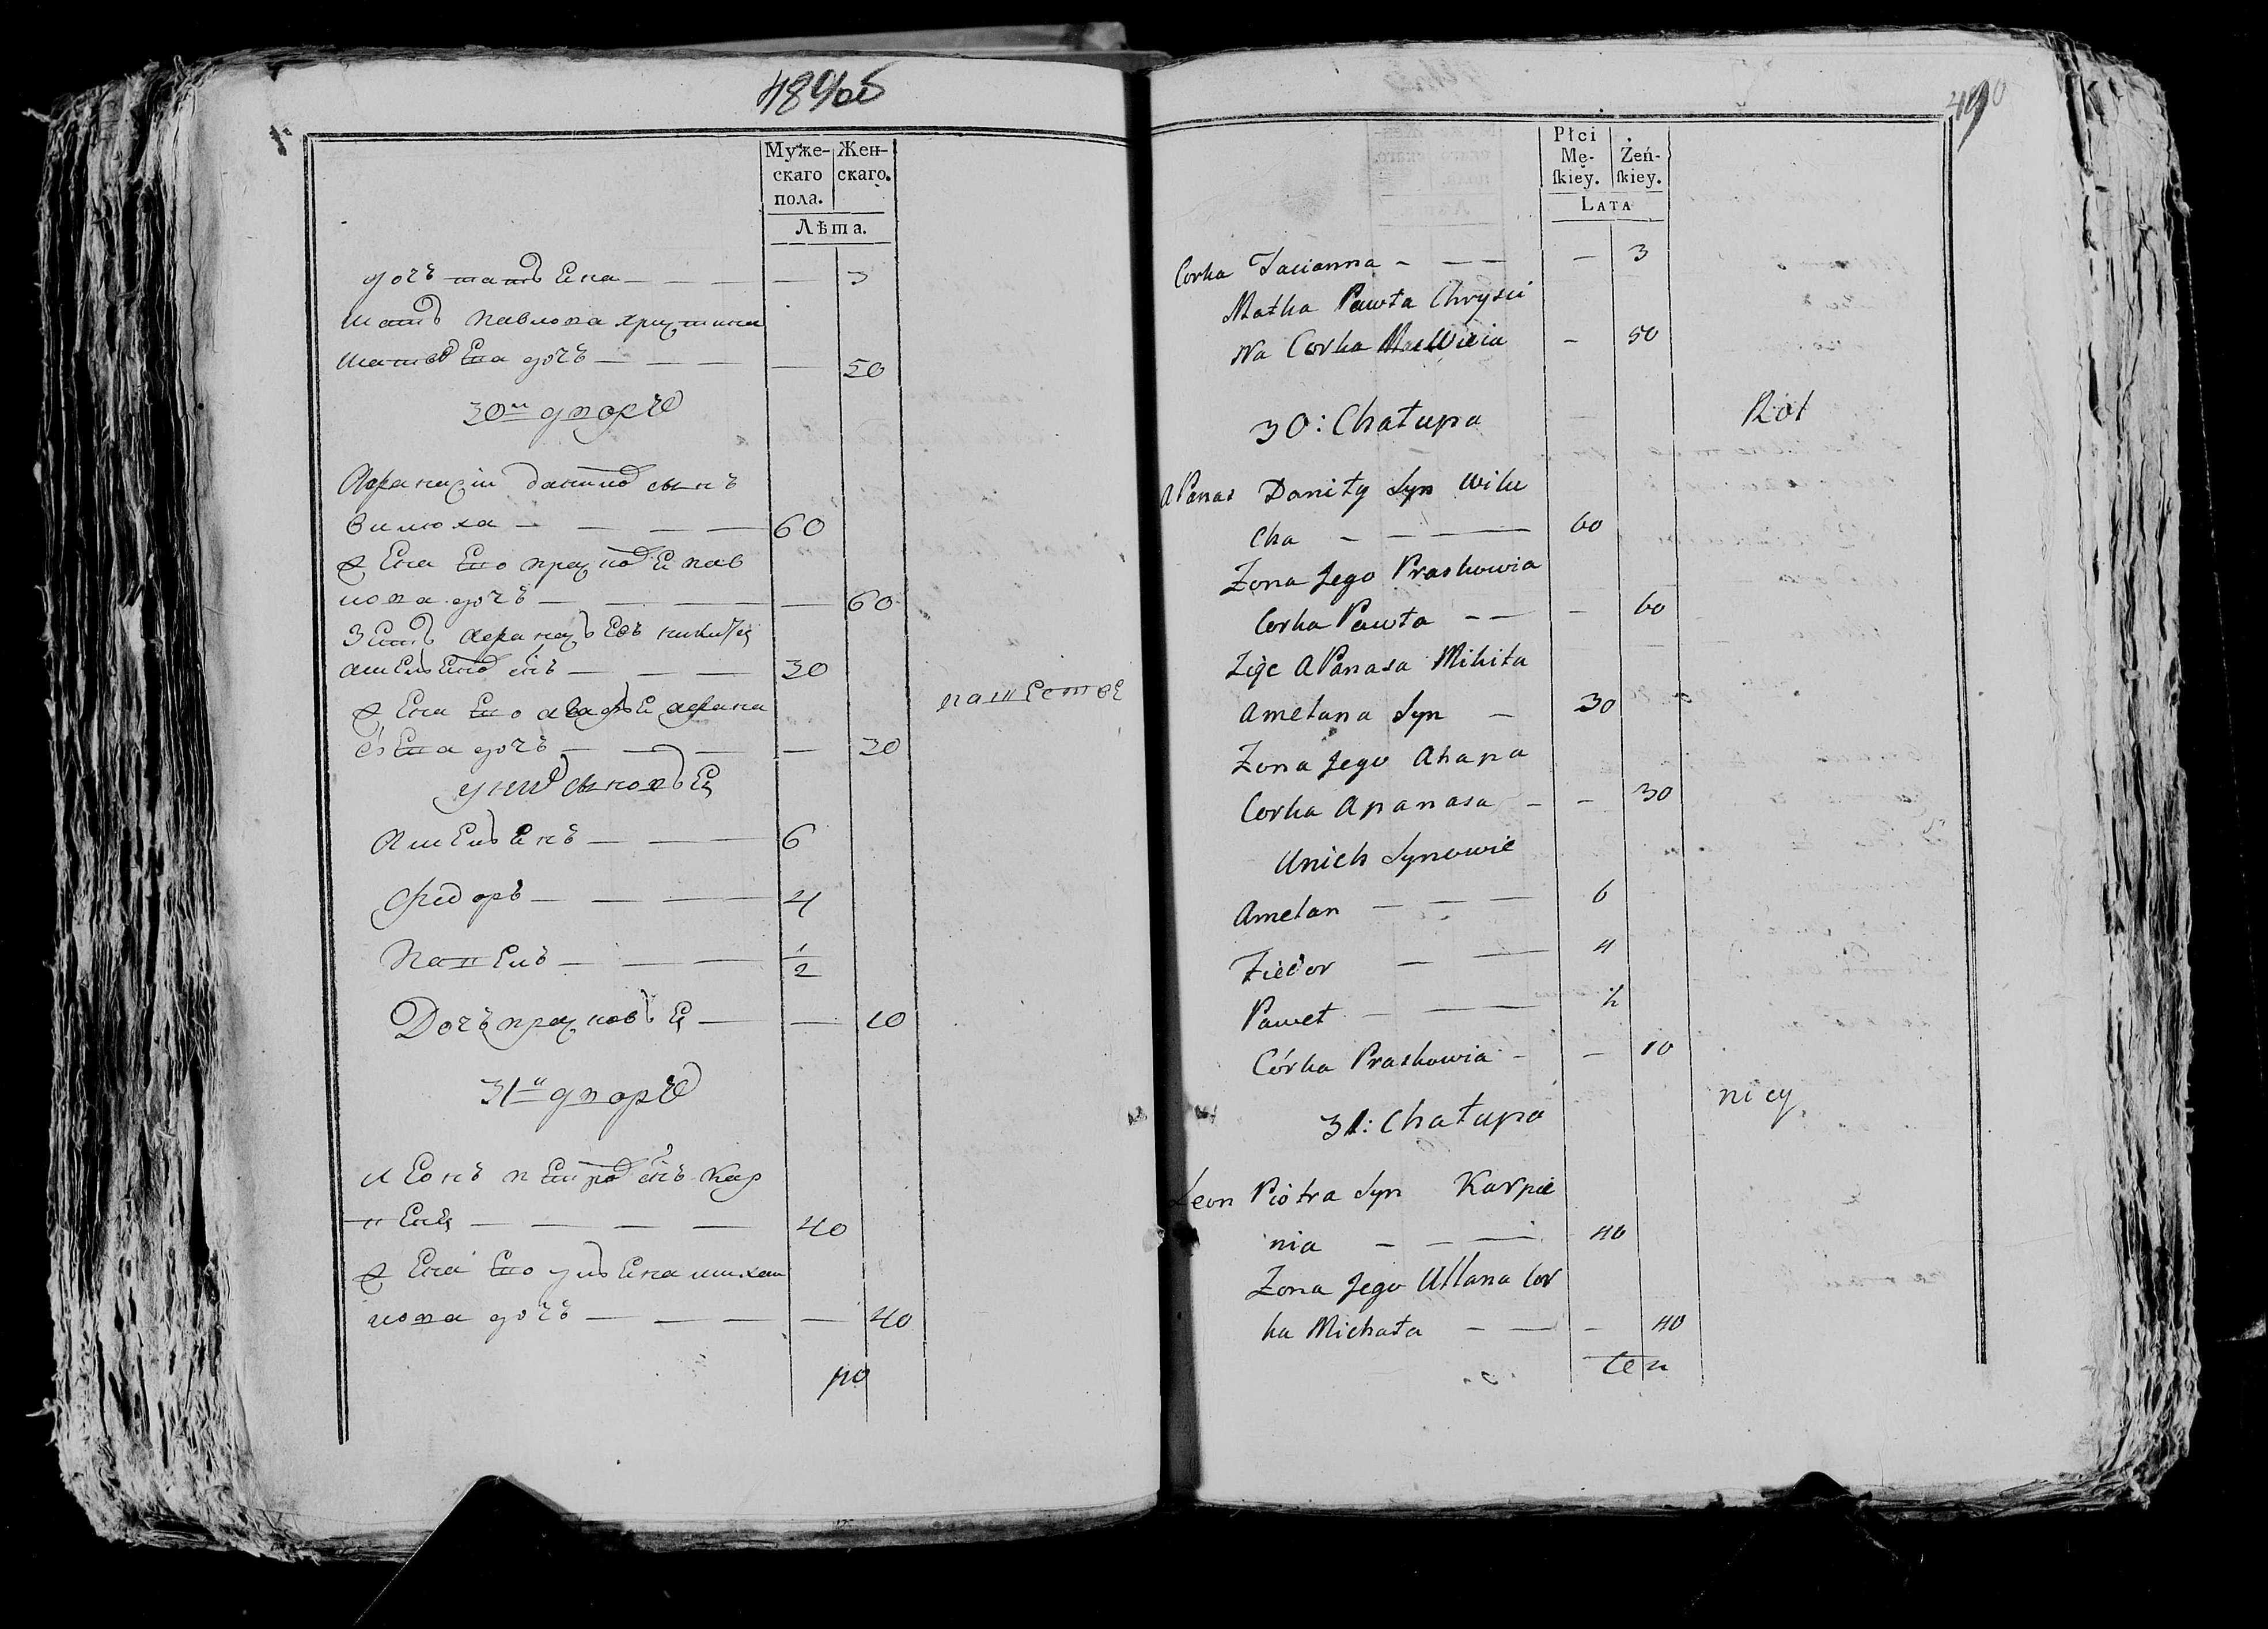 489об
Муже-
скаго
пола.
Жен-
скаго.
Лѣта.
дочъ татьена — — — — 3
мать павлова христина
матвеева дочъ — — — — 50
30й дворъ
Афанасий данилов сынъ
вилюха — — — — 60
жена его праскове пав
лова дочъ — — — — — 60
зеть афанасьевъ никита
амельенов снъ — — — 30
жена его агафье афана
сьева дочъ — — — — 30
у них сыновье
Амельенъ — — — 6
Федоръ — — — 4
Павелъ — — — 1/2
Дочъ прасковье — — 10
31й дворъ
леонъ петров снъ карп
— — — — 40
жена его ульена михаи
лова дочъ — — — — 40
нашества
490
Płci
Mę-
ſkiey.
Żeń-
ſkiey.
Lata
Corka Tacianna — — — — 3
Matka Pawła Chryści
na Corka — 50
30: Chałupa
Apanas Daniły Syn Wilu
cha — — — — 60
Zona Jego Praskowia
Corka Pawła — — — 60
Zięc Apanasa Mikita
Amelana Syn — 30
Zona Jego Ahapa
Corka Apanasa — — 30
Unich Synowie
Amelan — — — 6
Fiedor — — 4
Paweł — — ½
Córka Praskowia — — 10
31: Chałupa
Leon Piotra Syn Karpie
nia — — — 40
Zona Jego Ullana Cor
ka Michała — — — 40
Rot
nicy